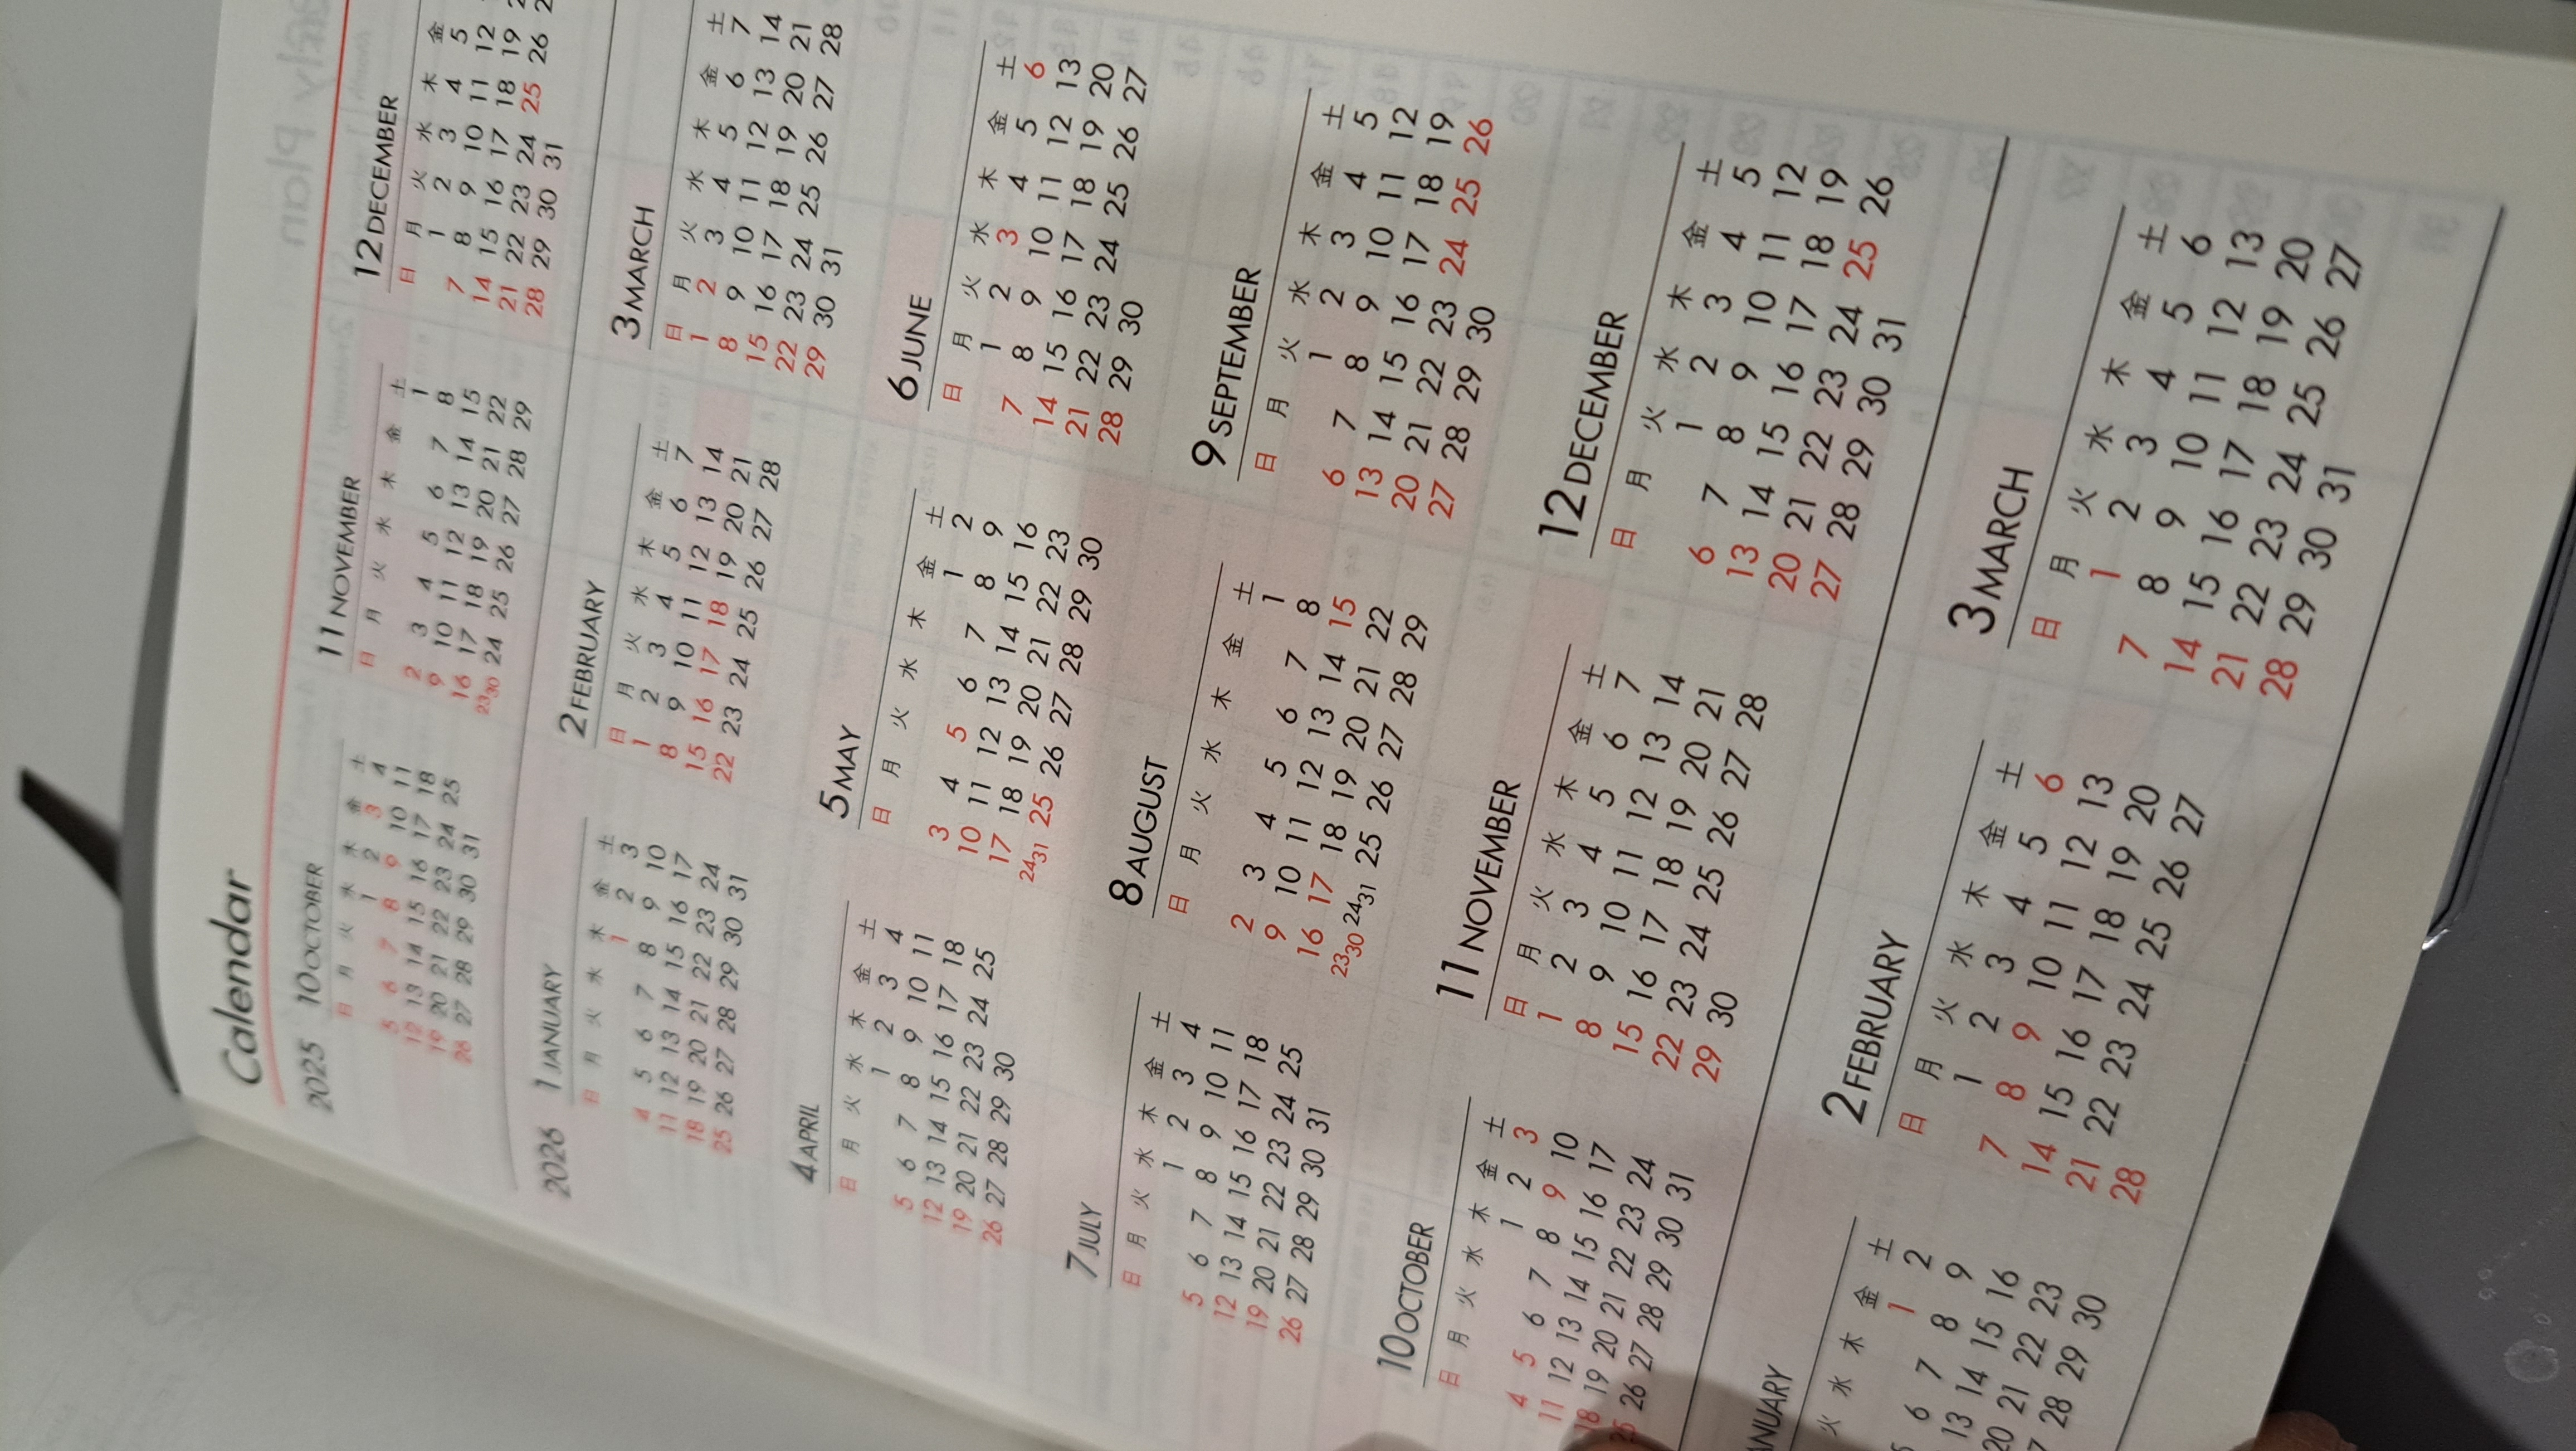 Calendar
2025
10 OCTOBER
日 月 火 水 木 金 土
1 2 3 4
5 6 7 8 9 10 11
12 13 14 15 16 17 18
19 20 21 22 23 24 25
26 27 28 29 30 31
11 NOVEMBER
日 月 火 水 木 金 土
1
2 3 4 5 6 7 8
9 10 11 12 13 14 15
16 17 18 19 20 21 22
23 30 24 25 26 27 28 29
12 DECEMBER
日 月 火 水 木 金
1 2 3 4 5
7 8 9 10 11 12
14 15 16 17 18 19
21 22 23 24 25 26
28 29 30 31
2026
1 JANUARY
日 月 火 水 木 金 土
1 2 3
4 5 6 7 8 9 10
11 12 13 14 15 16 17
18 19 20 21 22 23 24
25 26 27 28 29 30 31
2 FEBRUARY
日 月 火 水 木 金 土
1 2 3 4 5 6 7
8 9 10 11 12 13 14
15 16 17 18 19 20 21
22 23 24 25 26 27 28
3 MARCH
日 月 火 水 木 金 土
1 2 3 4 5 6 7
8 9 10 11 12 13 14
15 16 17 18 19 20 21
22 23 24 25 26 27 28
29 30 31
4 APRIL
日 月 火 水 木 金 土
1 2 3 4
5 6 7 8 9 10 11
12 13 14 15 16 17 18
19 20 21 22 23 24 25
26 27 28 29 30
5 MAY
日 月 火 水 木 金 土
1 2
3 4 5 6 7 8 9
10 11 12 13 14 15 16
17 18 19 20 21 22 23
24 31 25 26 27 28 29 30
6 JUNE
日 月 火 水 木 金 土
1 2 3 4 5 6
7 8 9 10 11 12 13
14 15 16 17 18 19 20
21 22 23 24 25 26 27
28 29 30
7 JULY
日 月 火 水 木 金 土
1 2 3 4
5 6 7 8 9 10 11
12 13 14 15 16 17 18
19 20 21 22 23 24 25
26 27 28 29 30 31
8 AUGUST
日 月 火 水 木 金 土
1
2 3 4 5 6 7 8
9 10 11 12 13 14 15
16 17 18 19 20 21 22
23 30 24 31 25 26 27 28 29
9 SEPTEMBER
日 月 火 水 木 金 土
1 2 3 4 5
6 7 8 9 10 11 12
13 14 15 16 17 18 19
20 21 22 23 24 25 26
27 28 29 30
10 OCTOBER
日 月 火 水 木 金 土
1 2 3
4 5 6 7 8 9 10
11 12 13 14 15 16 17
18 19 20 21 22 23 24
25 26 27 28 29 30 31
11 NOVEMBER
日 月 火 水 木 金 土
1 2 3 4 5 6 7
8 9 10 11 12 13 14
15 16 17 18 19 20 21
22 23 24 25 26 27 28
29 30
12 DECEMBER
日 月 火 水 木 金 土
1 2 3 4 5
6 7 8 9 10 11 12
13 14 15 16 17 18 19
20 21 22 23 24 25 26
27 28 29 30 31
ANUARY
火 水 木 金 土
1 2
6 7 8 9
13 14 15 16
20 21 22 23
28 29 30
2 FEBRUARY
日 月 火 水 木 金 土
1 2 3 4 5 6
7 8 9 10 11 12 13
14 15 16 17 18 19 20
21 22 23 24 25 26 27
28
3 MARCH
日 月 火 水 木 金 土
1 2 3 4 5 6
7 8 9 10 11 12 13
14 15 16 17 18 19 20
21 22 23 24 25 26 27
28 29 30 31